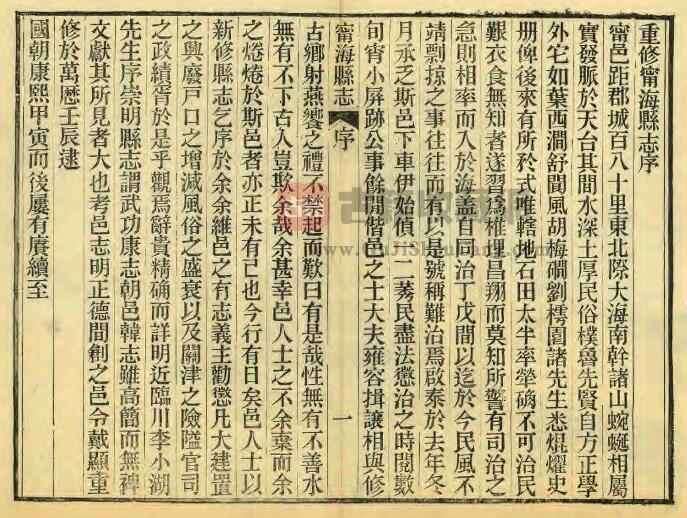 重修甯海縣志序
甯邑距郡城百八十里東北際大海南幹諸山蜿蜒相屬
實發脈於天台其間水深土厚民俗樸魯先賢自方正學
外它如葉西澗舒閬風胡梅磵劉樗園諸先生悉焜燿史
册俾後來有所矜式唯轄地石田太半犖确不可治民
艱衣食無知者遂習為椎埋昌翔而莫知所警有司治之
急則相率而入於海蓋自同治丁戊間以迄於今民風不
靖剽掠之事往往而有以是號稱難治焉啟泰於去年冬
月承乏斯邑下車伊始偵一二莠民盡法懲治之時閱數
旬宵小屏跡公事餘閒偕邑之士大夫雍容揖讓相與修
甯海縣志 序 一
古鄉射燕饗之禮不禁起而歎曰有是哉性無有不善水
無有不下古人豈欺余哉余甚幸邑人士之不余棄而余
之惓惓於斯邑者亦正未有已也今行有日矣邑人士以
新修縣志乞序於余余維邑之有志義主勸懲凡大建置
之興廢戶口之增減風俗之盛衰以及關津之險隘官司
之政績胥於是乎觀焉辭貴精确而詳明近臨川李小湖
先生序崇明縣志謂武功康志朝邑韓志雖高簡而無裨
文獻其所見者大也考邑志明正德間創之邑令戴顯重
修於萬歷壬辰逮
國朝康熙甲寅而後屢有賡續至